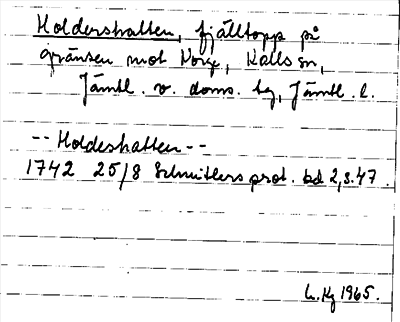 Holdershatten, fjälltopp på
gränsen mot Norge, Kalls sn,
Jämtl. v. doms. tg, Jämtl. l.
-- Holdeshatten --
1742 25/8 Schnitlers prot. bd 2, s. 47.
1965.